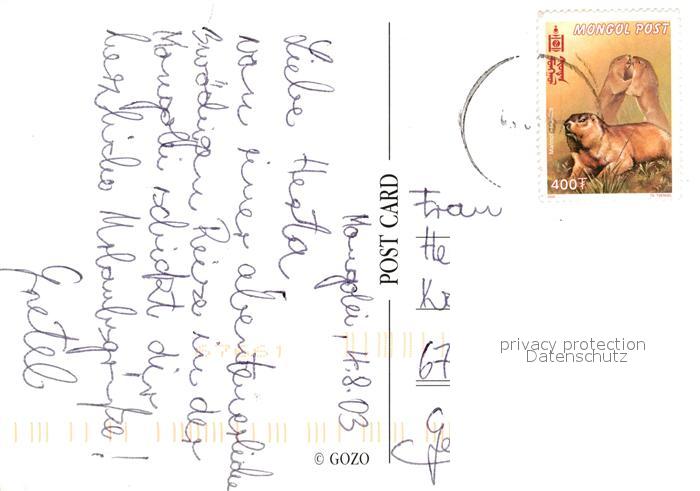 Mongolei 14.8.03
Liebe Herta
von einer abenteuerlichen
3wöchigen Reise in der
Mongolei schickt dir
herzliche Urlaubsgrüße!
Gretel
POST CARD
© GOZO
MONGOL POST
400₮
Frau
He
67
Ge
privacy protection
Datenschutz
57661